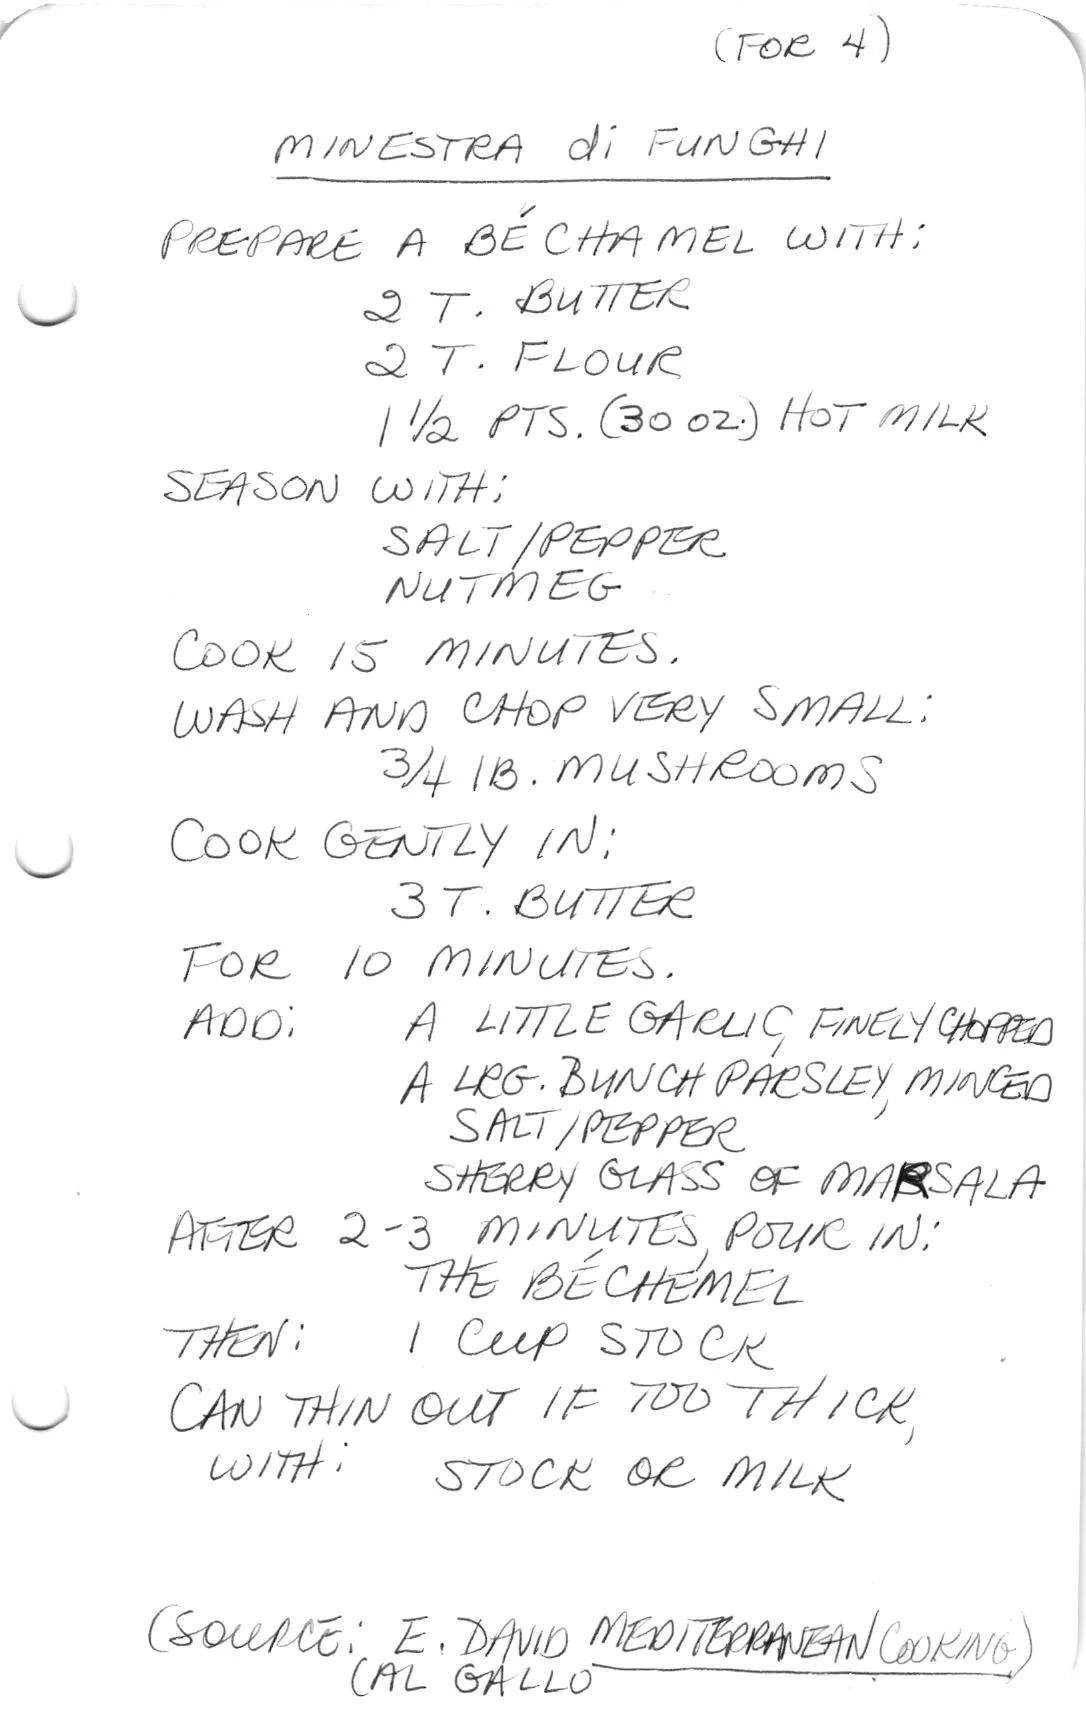 (FOR 4)
MINESTRA di FUNGHI
PREPARE A BÉCHAMEL WITH:
2 T. BUTTER
2 T. FLOUR
1 1/2 PTS. (30 OZ.) HOT MILK
SEASON WITH:
SALT/PEPPER
NUTMEG
COOK 15 MINUTES.
WASH AND CHOP VERY SMALL:
3/4 lB. MUSHROOMS
COOK GENTLY IN:
3 T. BUTTER
FOR 10 MINUTES.
ADD: A LITTLE GARLIC, FINELY CHOPPED
A LRG. BUNCH PARSLEY, MINCED
SALT/PEPPER
SHERRY GLASS OF MARSALA
AFTER 2-3 MINUTES, POUR IN:
THE BÉCHEMEL
THEN: 1 CUP STOCK
CAN THIN OUT IF TOO THICK,
WITH: STOCK OR MILK
(SOURCE: E. DAVID MEDITERRANEAN COOKING)
(AL GALLO